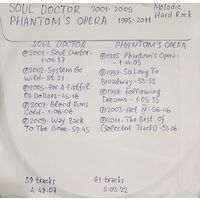 SOUL DOCTOR 2001-2009 Melodic
PHANTOM'S OPERA 1995-2011 Hard Rock
SOUL DOCTOR
① 2001-Soul Doctor-
1:04:37
② 2002-System Go
Wild-52:21
③ 2005-For A Fistful
Of Dollars-45:16
④ 2008-Blood Runs
Cold-1:06:08
⑤ 2009-Way Back
To The Bone-59:45
59 tracks
4:49:07
PHANTOM'S OPERA
① 1995-Phantom's Opera-
1:04:03
② 1997-So Long To
Broadway-52:22
③ 1998-Following
Dreams-1:05:33
④ 2003-Act IV-56:46
⑤ 2011-The Best Of
(Selected Tracks)-53:06
61 tracks
5:03:22